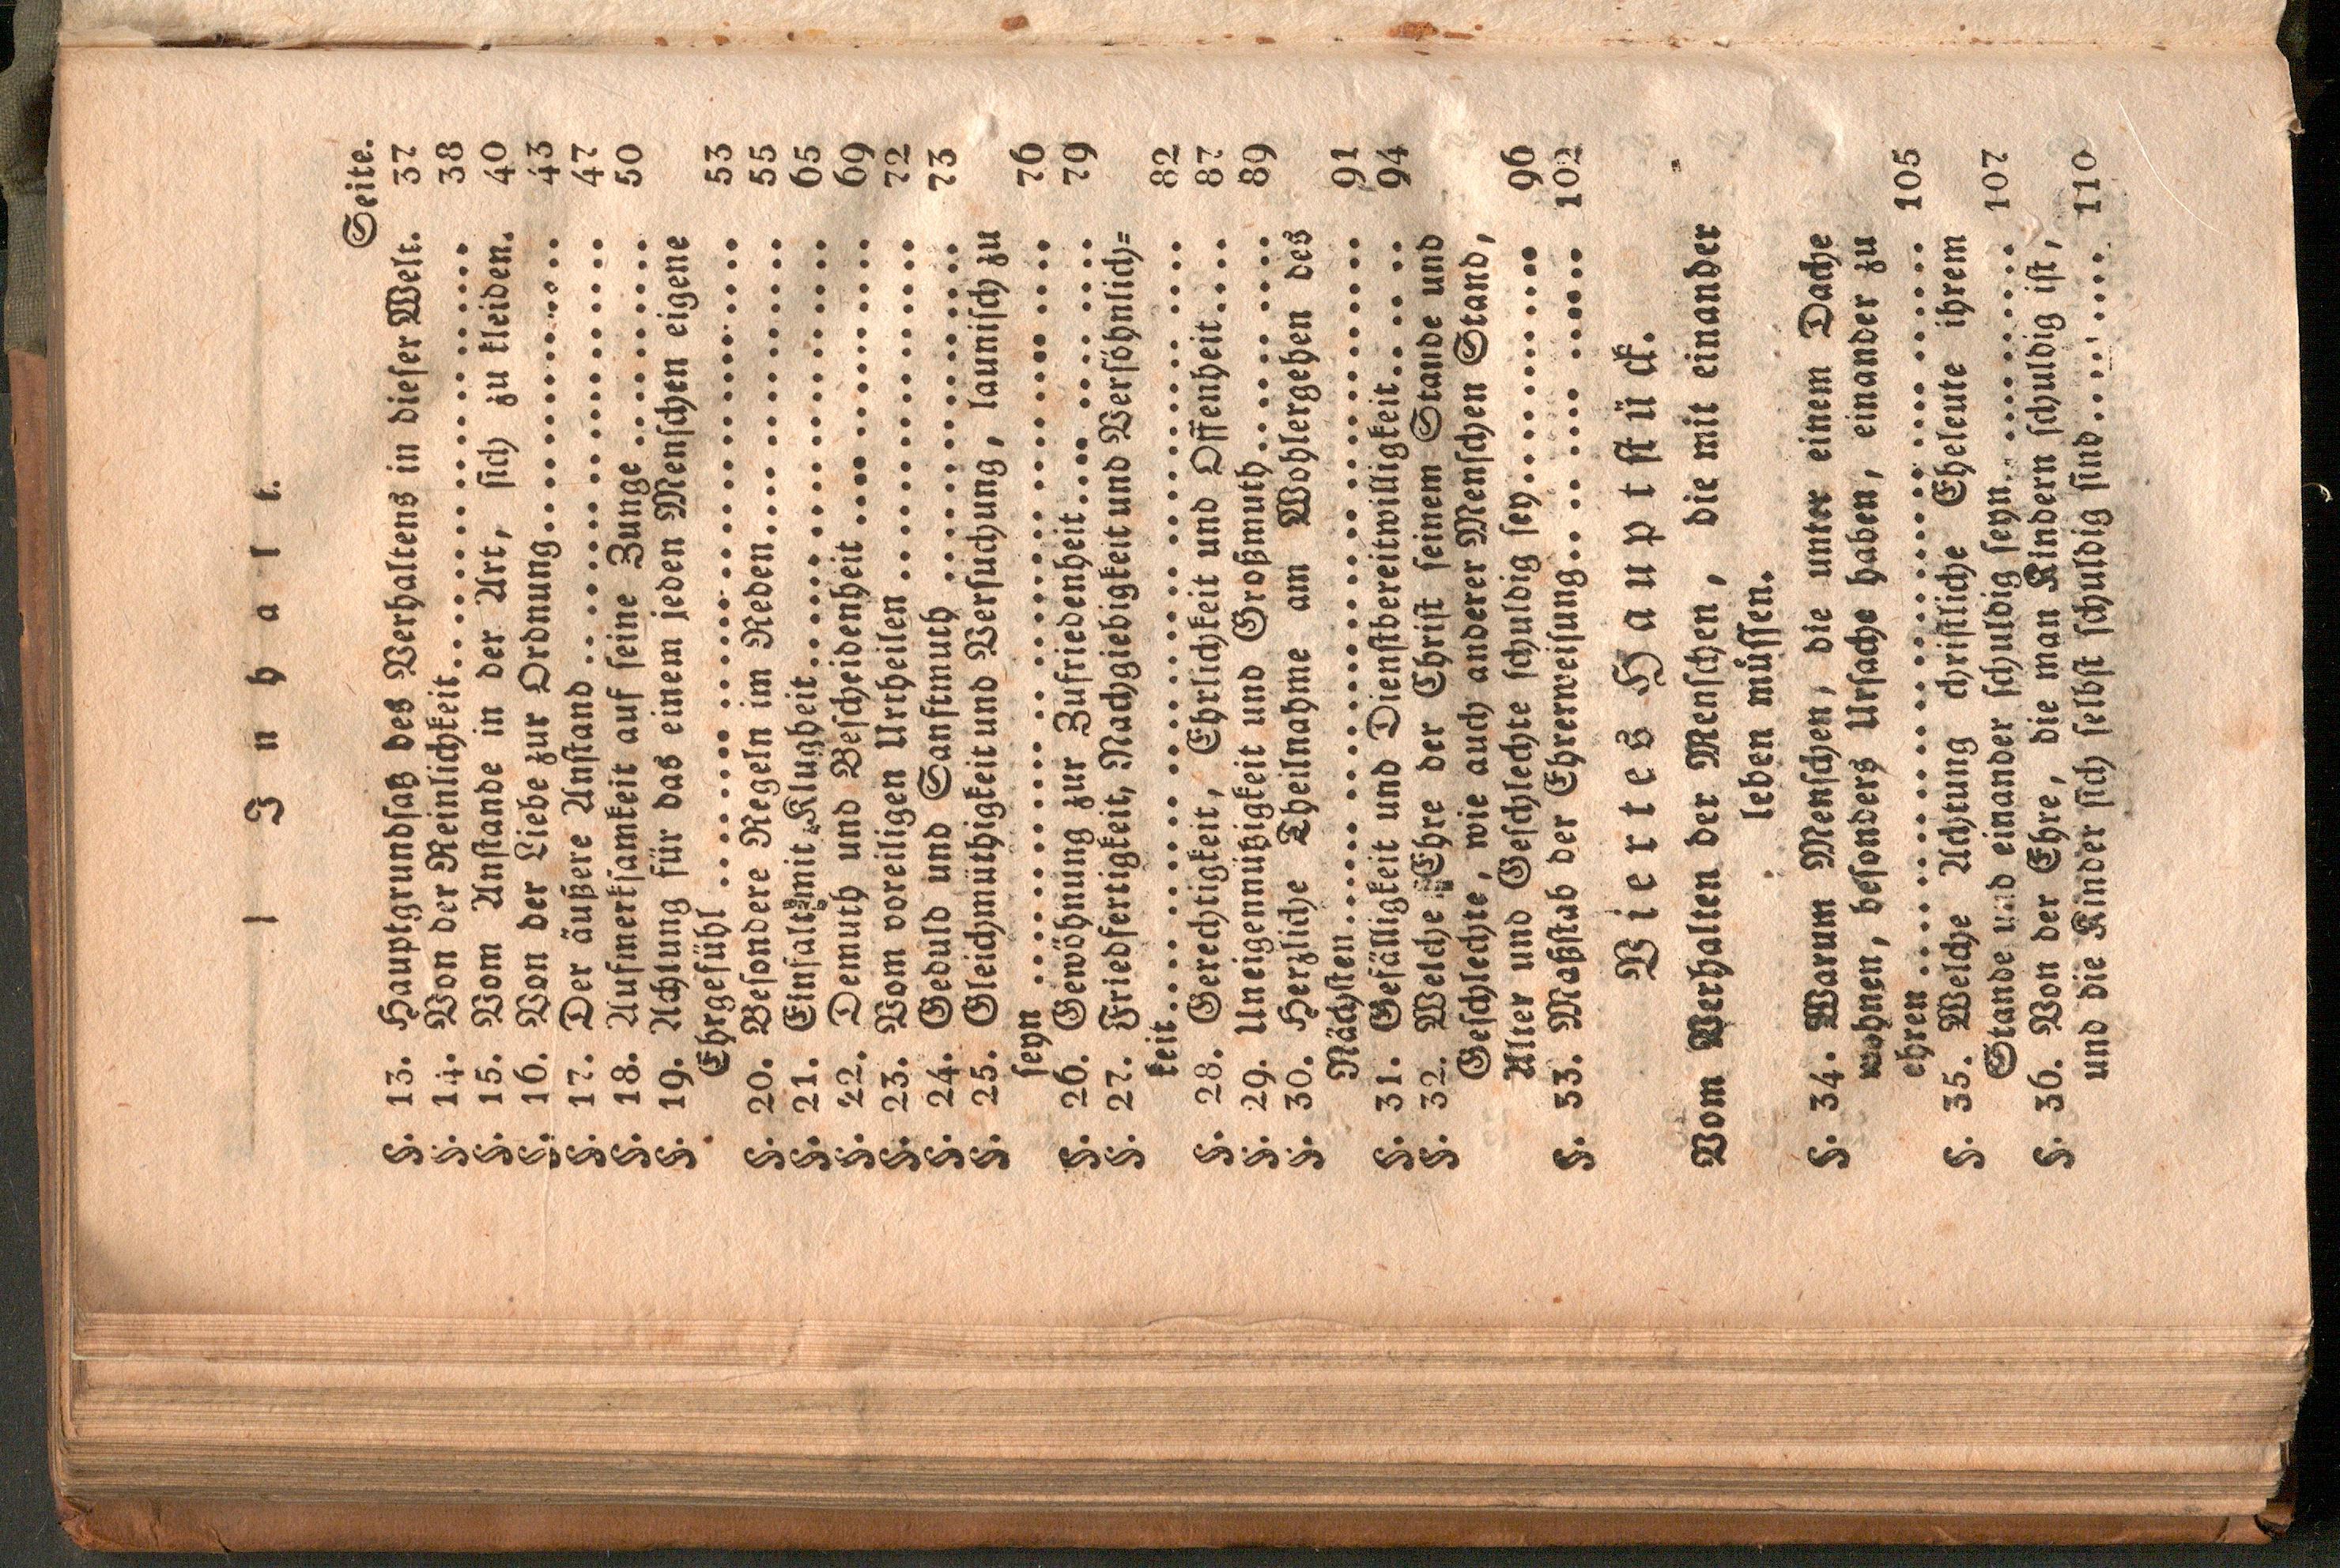 Inhalt.
Seite.
§. 13. Hauptgrundsatz des Verhaltens in dieser Welt. 37
§. 14. Von der Reinlichkeit........................ 38
§. 15. Vom Anstande in der Art, sich zu kleiden. 40
§. 16. Von der Liebe zur Ordnung................ 43
§. 17. Der äußere Anstand ...................... 47
§. 18. Aufmerksamkeit auf seine Zunge .......... 50
§. 19. Achtung für das einem jeden Menschen eigene
Ehrgefühl .............................. 53
§. 20. Besondere Regeln im Reden................ 55
§. 21. Einfalt mit Klugheit...................... 65
§. 22. Demuth und Bescheidenheit ................ 69
§. 23. Vom voreiligen Urtheilen .................. 72
§. 24. Geduld und Sanftmuth .................... 73
§. 25. Gleichmüthigkeit und Versuchung, launisch zu
seyn .................................... 76
§. 26. Gewöhnung zur Zufriedenheit.............. 79
§. 27. Friedfertigkeit, Nachgiebigkeit und Versöhnlich=
keit...................................... 82
§. 28. Gerechtigkeit, Ehrlichkeit und Offenheit.... 87
§. 29. Uneigennützigkeit und Großmuth.......... 89
§. 30. Herzliche Theilnahme am Wohlergehen des
Nächsten................................ 91
§. 31. Gefälligkeit und Dienstbereitwilligkeit...... 94
§. 32. Welche Ehre der Christ seinem Stande und
Geschlechte, wie auch anderer Menschen Stand,
Alter und Geschlechte schuldig sey.......... 96
§. 33. Maßstab der Ehrerweisung................ 102
Viertes Hauptstück.
Vom Verhalten der Menschen, die mit einander
leben müssen.
§. 34. Warum Menschen, die unter einem Dache
wohnen, besonders Ursache haben, einander zu
ehren .................................. 105
§. 35. Welche Achtung christliche Eheleute ihrem
Stande und einander schuldig seyn.......... 107
§. 36. Von der Ehre, die man Kindern schuldig ist,
und die Kinder sich selbst schuldig sind........ 110